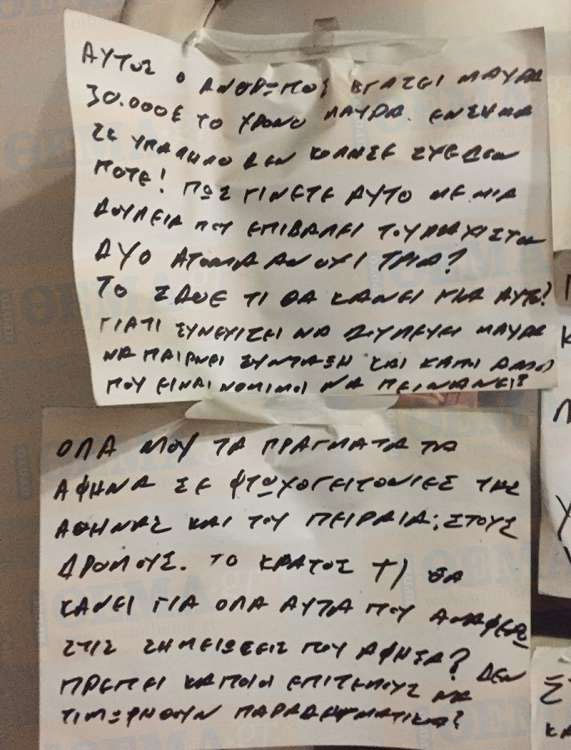 ΑΥΤΟΣ Ο ΑΝΘΡΩΠΟΣ ΒΓΑΖΕΙ ΜΑΥΡΑ
30.000€ ΤΟ ΧΡΟΝΟ ΜΑΥΡΑ. ΕΝΣΗΜΑ
ΣΕ ΥΠΑΛΗΛΟ ΔΕΝ ΚΟΛΗΣΕ ΣΧΕΔΩΝ
ΠΟΤΕ! ΠΩΣ ΓΙΝΕΤΕ ΑΥΤΟ ΜΕ ΜΙΑ
ΔΟΥΛΕΙΑ ΠΟΥ ΕΠΙΒΑΛΕΙ ΤΟΥΛΑΧΙΣΤΟΝ
ΔΥΟ ΑΤΟΜΑ ΑΝ ΟΧΙ ΤΡΙΑ?
ΤΟ ΣΔΟΕ ΤΙ ΘΑ ΚΑΝΕΙ ΓΙΑ ΑΥΤΟ?
ΓΙΑΤΙ ΣΥΝΕΧΙΖΕΙ ΝΑ ΔΟΥΛΕΥΕΙ ΜΑΥΡΑ
ΝΑ ΠΑΙΡΝΕΙ ΣΥΝΤΑΞΗ ΚΑΙ ΚΑΠΟΙ ΑΛΛΟΙ
ΠΟΥ ΕΙΝΑΙ ΝΟΜΙΜΟΙ ΝΑ ΠΕΙΝΑΝΕ?
ΟΛΑ ΜΟΥ ΤΑ ΠΡΑΓΜΑΤΑ ΤΑ
ΑΦΗΝΑ ΣΕ ΦΤΩΧΟΓΕΙΤΟΝΙΕΣ ΤΗΣ
ΑΘΗΝΑΣ ΚΑΙ ΤΟΥ ΠΕΙΡΑΙΑ, ΣΤΟΥΣ
ΔΡΟΜΟΥΣ. ΤΟ ΚΡΑΤΟΣ ΤΙ ΘΑ
ΚΑΝΕΙ ΓΙΑ ΟΛΑ ΑΥΤΑ ΠΟΥ ΑΝΑΦΕΡΩ
ΣΤΙΣ ΣΗΜΕΙΩΣΕΙΣ ΠΟΥ ΑΦΗΣΑ? ΔΕΝ
ΠΡΕΠΕΙ ΚΑΠΟΙΟΙ ΕΠΙΤΕΛΟΥΣ ΝΑ
ΤΙΜΩΡΗΘΟΥΝ ΠΑΡΑΔΕΙΓΜΑΤΙΚΑ?